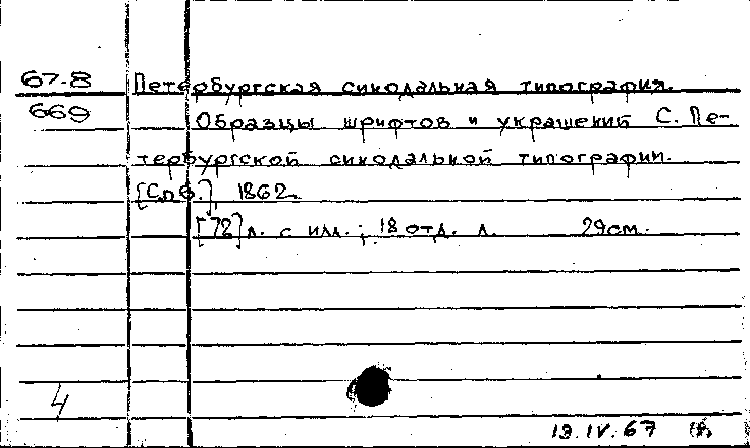 67-8 Петербургская синодальная типография.
669 Образцы шрифтов и украшений С. Пе-
тербургской синодальной типографии.
[Спб.], 1862.
[72] л. с илл.; 18 отд. л. 29 см.
4
13.IV.67